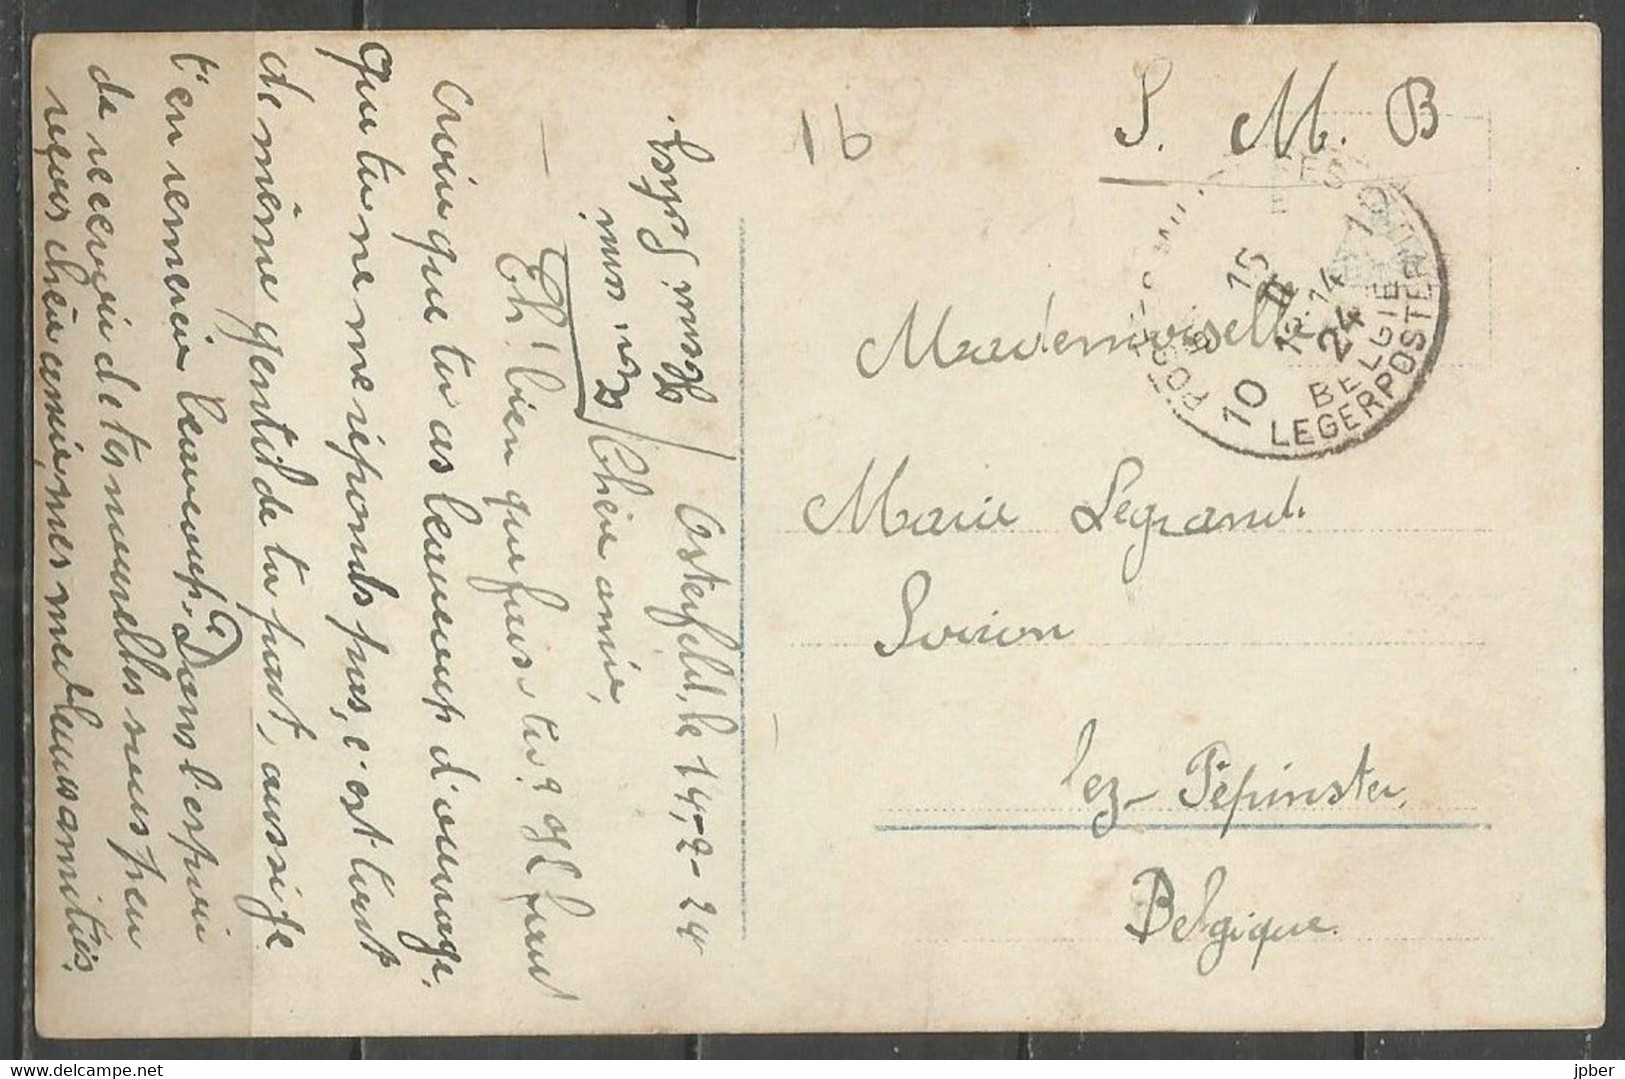 S. M. B
1b
POSTES MILITAIRES 10
15 II 12-14 24
BELGIE
10 LEGERPOSTERIJ
Mademoiselle
Marie Legrand.
Soiron
lez-Pépinster
Belgique.
Osterfeld, le 14-2-24
Chère amie,
Eh! bien que fais-tu? Il faut
croire que tu as beaucoup d'ouvrage,
que tu ne me réponds pas, c'est tout
de même gentil de ta part, aussi je
t'en remercie beaucoup. Dans l'espoir
de recevoir de tes nouvelles sous peu
reçois chère amie, mes meilleures amitiés.
Ton ami
Henri